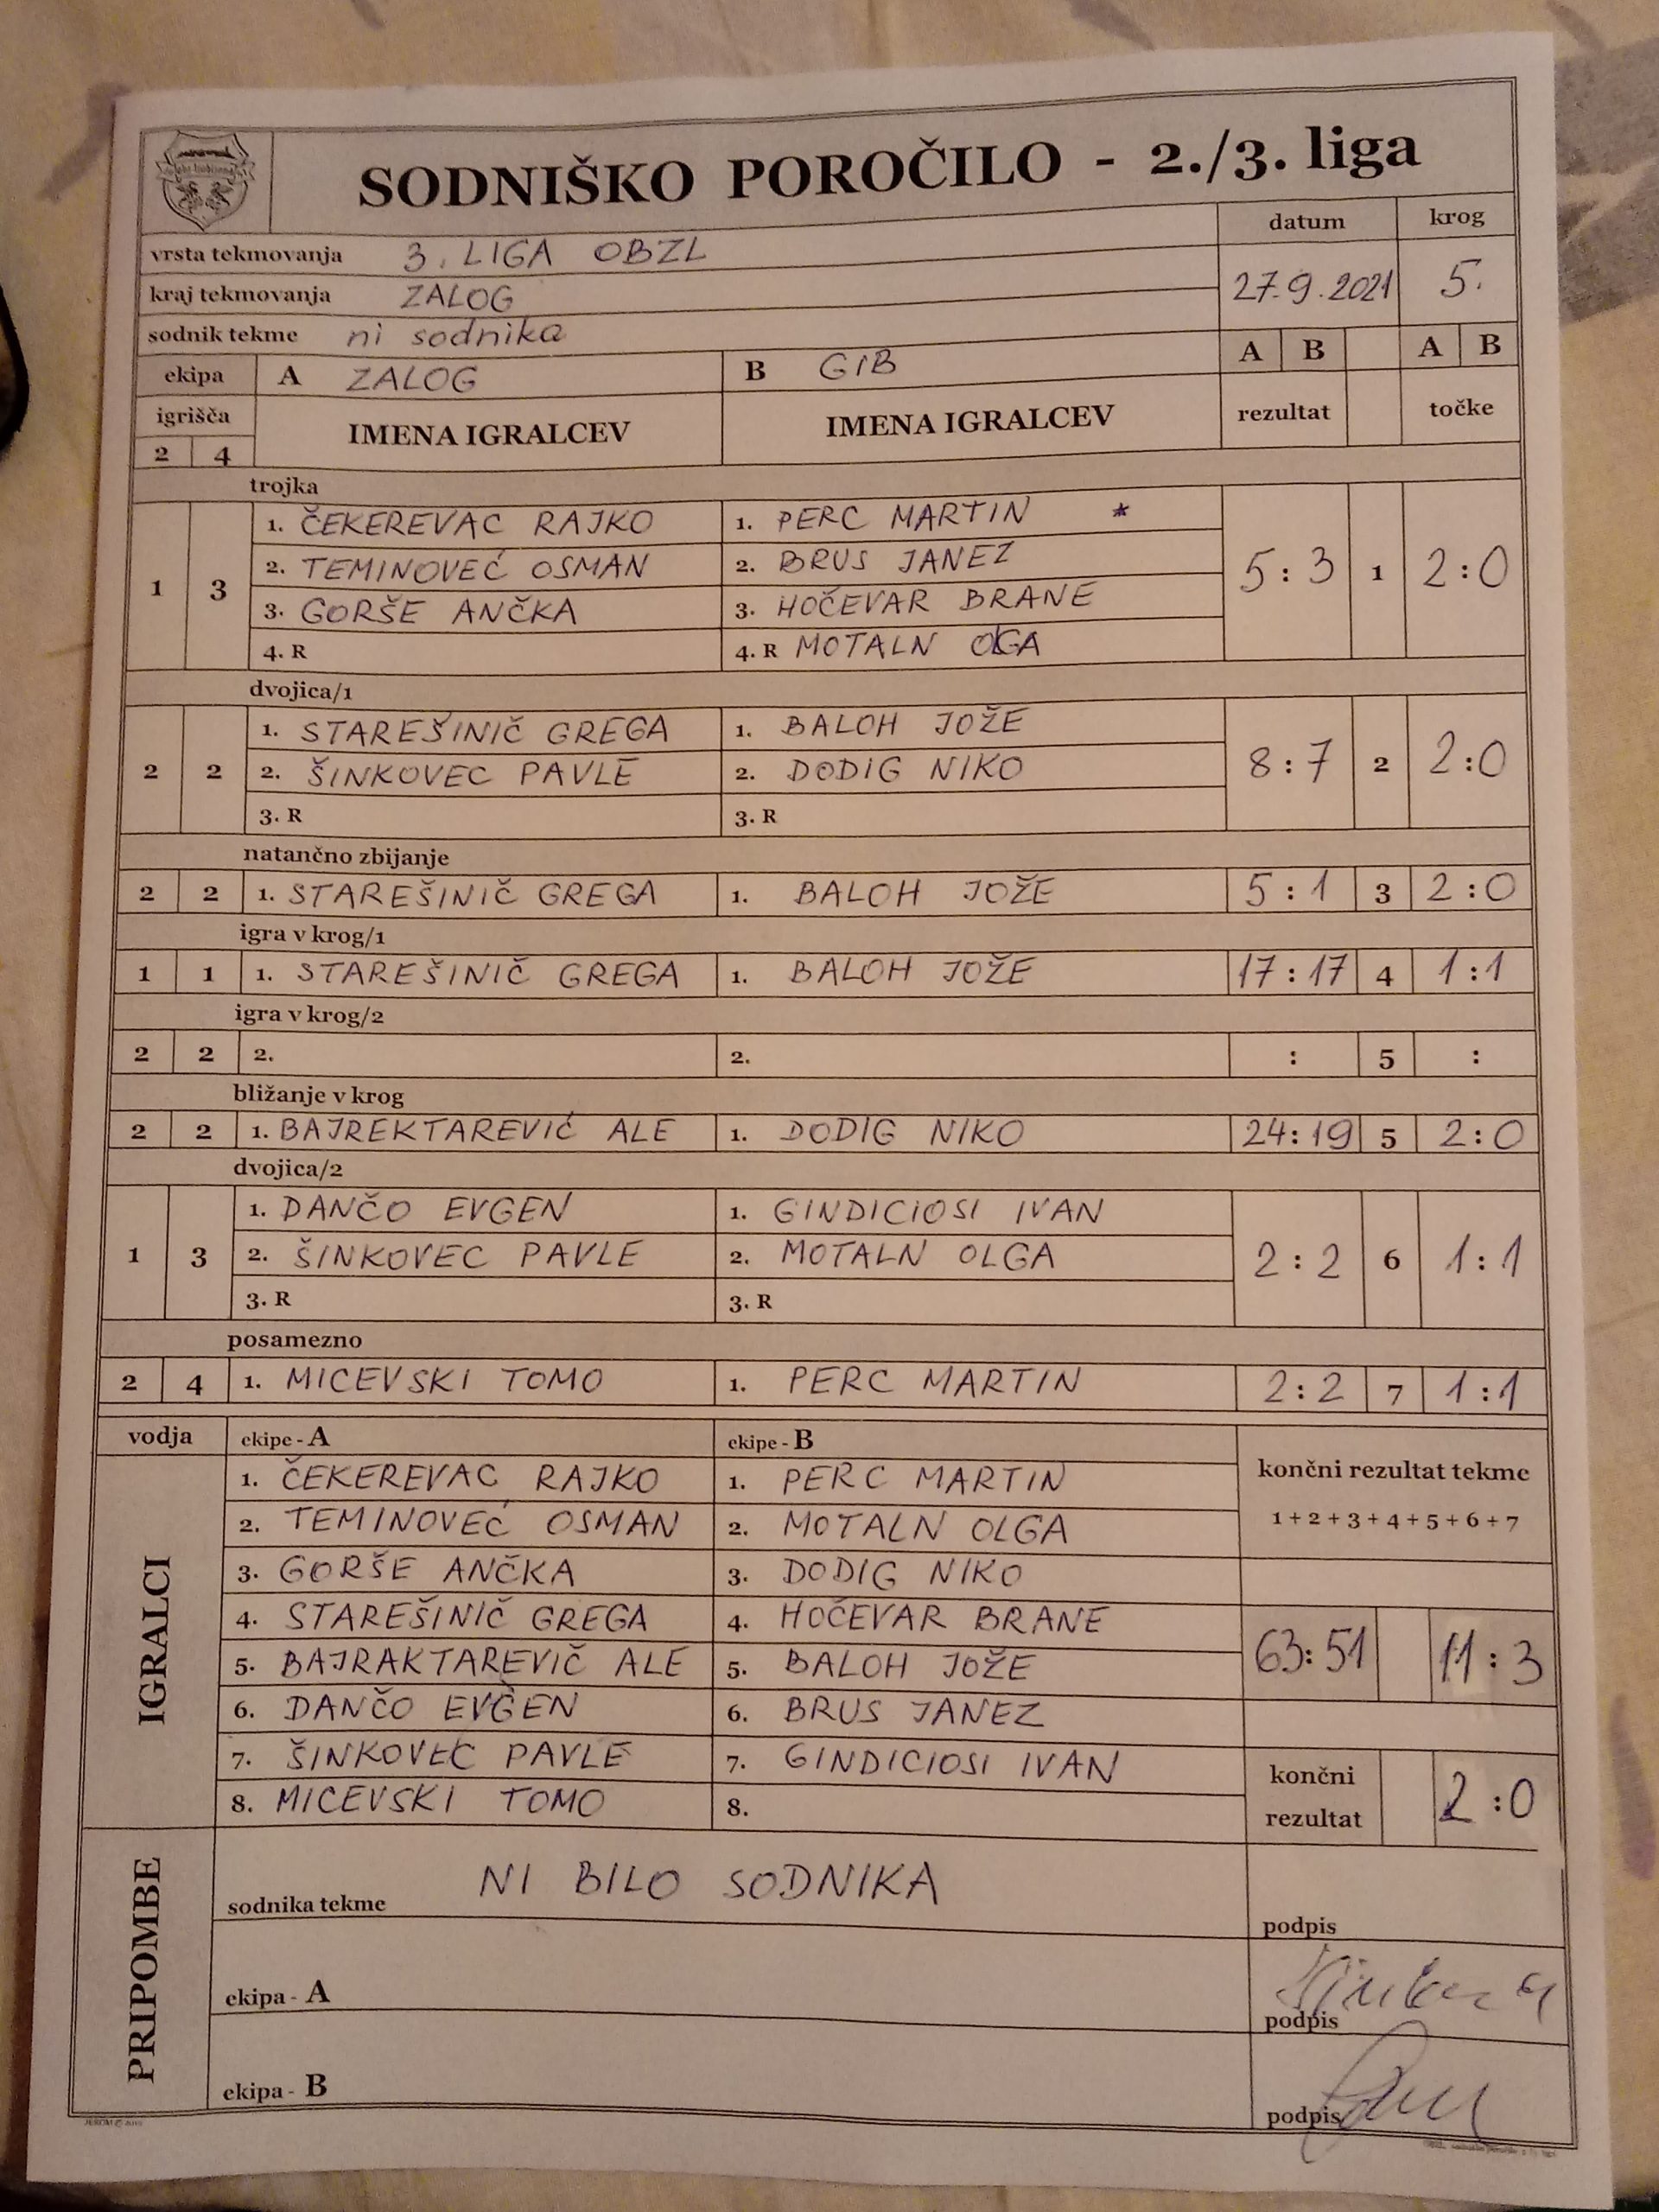 SODNIŠKO POROČILO - 2./3. liga
vrsta tekmovanja 3. LIGA OBZL datum krog
kraj tekmovanja ZALOG 27.9.2021 5.
sodnik tekme ni sodnika
ekipa A ZALOG B GIB A B A B
igrišča IMENA IGRALCEV IMENA IGRALCEV rezultat točke
2 4
trojka
1. ČEKEREVAC RAJKO 1. PERC MARTIN *
2. TEMINOVEĆ OSMAN 2. BRUS JANEZ
1 3 5:3 1 2:0
3. GORŠE ANČKA 3. HOČEVAR BRANE
4. R 4. R MOTALN OLGA
dvojica/1
1. STAREŠINIČ GREGA 1. BALOH JOŽE
2 2 2. ŠINKOVEC PAVLE 2. DODIG NIKO 8:7 2 2:0
3. R 3. R
natančno zbijanje
2 2 1. STAREŠINIČ GREGA 1. BALOH JOŽE 5:1 3 2:0
igra v krog/1
1 1 1. STAREŠINIČ GREGA 1. BALOH JOŽE 17:17 4 1:1
igra v krog/2
2 2 2. 2. : 5 :
bližanje v krog
2 2 1. BAJREKTAREVIĆ ALE 1. DODIG NIKO 24:19 5 2:0
dvojica/2
1. DANČO EVGEN 1. GINDICIOSI IVAN
1 3 2. ŠINKOVEC PAVLE 2. MOTALN OLGA 2:2 6 1:1
3. R 3. R
posamezno
2 4 1. MICEVSKI TOMO 1. PERC MARTIN 2:2 7 1:1
vodja ekipe - A ekipe - B
IGRALCI
1. ČEKEREVAC RAJKO 1. PERC MARTIN končni rezultat tekme
2. TEMINOVEĆ OSMAN 2. MOTALN OLGA 1 + 2 + 3 + 4 + 5 + 6 + 7
3. GORŠE ANČKA 3. DODIG NIKO
4. STAREŠINIČ GREGA 4. HOČEVAR BRANE
5. BAJRAKTAREVIČ ALE 5. BALOH JOŽE 63:51 11:3
6. DANČO EVGEN 6. BRUS JANEZ
7. ŠINKOVEC PAVLE 7. GINDICIOSI IVAN
8. MICEVSKI TOMO 8. končni rezultat 2:0
PRIPOMBE
sodnika tekme NI BILO SODNIKA podpis
ekipa - A podpis
ekipa - B podpis